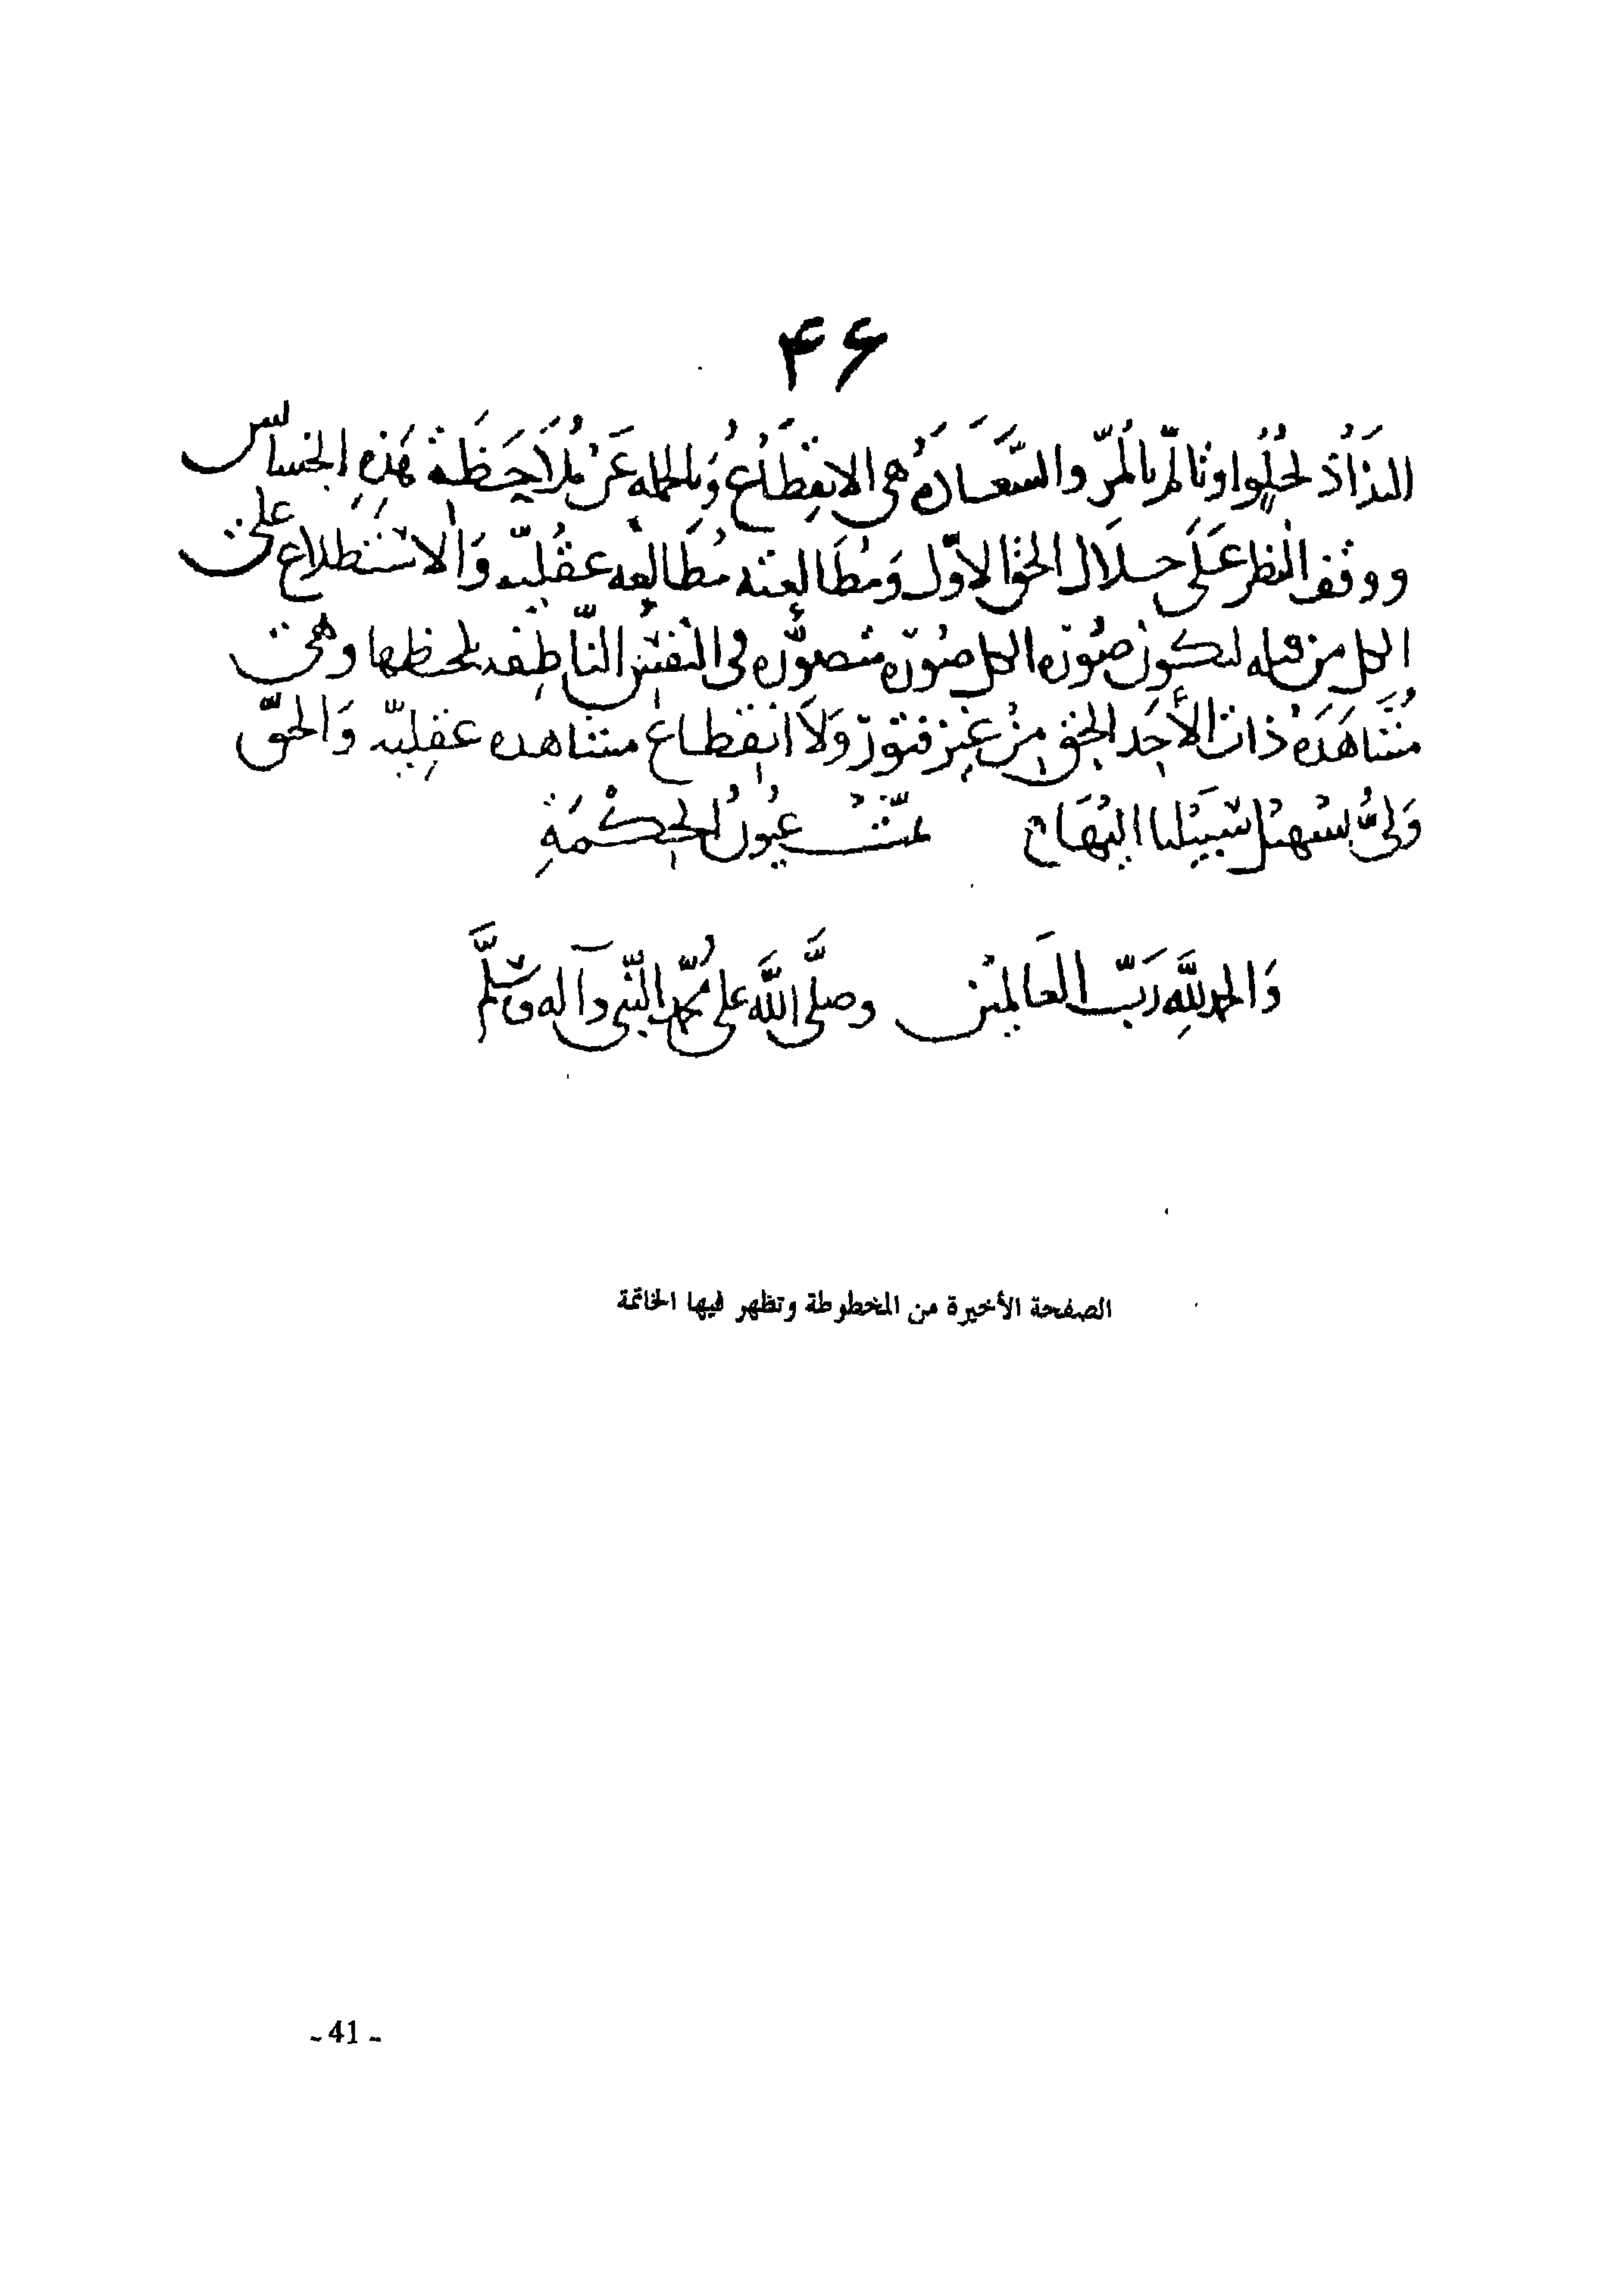 ۴۶
التذاذ لحلو او تألم بالمرّ والسَّعَادَةُ هي الانقطاعُ وَبالجملة عَنْ مُلاَحَظَة هَذِهِ الخساس
ووقف النظر عَلَى جلال الحق الأوّل وَمُطَالعته مُطَالعة عقليّه وَالاستطلاع على
الكل من قبله لتكون صُوَرَه الكل صُوَرَه متصوّره في النفس النّاطقه يلحظها وهي
مُشَاهَدَهُ ذات الأحَد الحق مِنْ غير فتورٍ وَلاَ انقطاع مشاهده عقليّه وَالحقّ
وَليُّ تسهيل سَبيلنا اليها تمّت عُيُونُ الحِكْمَةِ
وَالحمد لِلَّه رَبّ العَالمين وصلَّى اللَّه على محمّد النّبي وآله وسَلَّم
الصفحة الأخيرة من المخطوطة وتظهر فيها الخاتمة
- 41 -